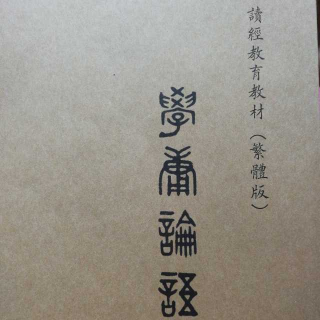 讀經教育教材（繁體版）
學庸論語